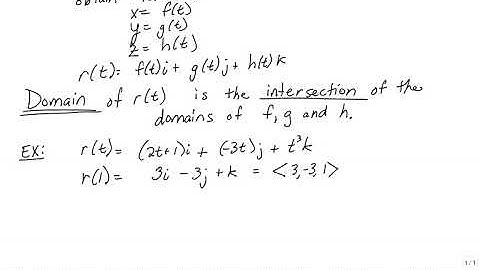 x= f(t)
y= g(t)
z= h(t)
r(t)= f(t)i + g(t)j + h(t)k
Domain of r(t) is the intersection of the
domains of f, g and h.
EX: r(t)= (2t+1)i + (-3t)j + t³k
r(1)= 3i - 3j + k = <3,-3,1>
1/1